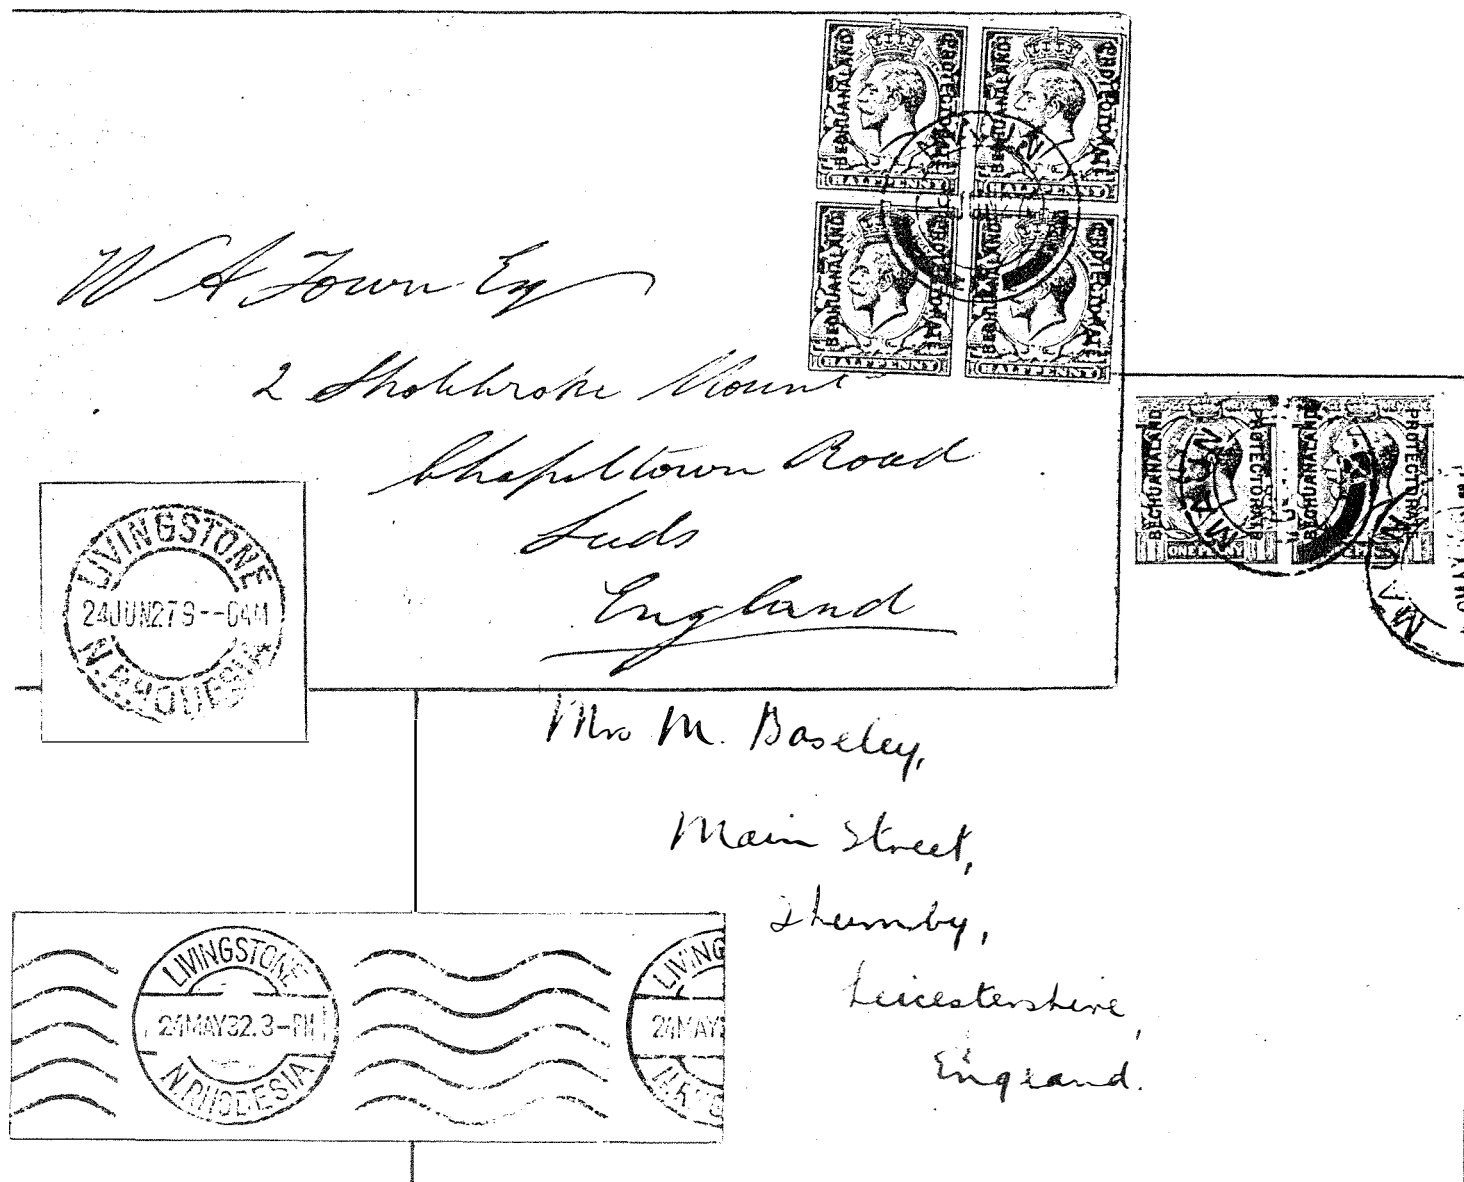 BECHUANALAND PROTECTORATE
HALFPENNY
BECHUANALAND PROTECTORATE
HALFPENNY
BECHUANALAND PROTECTORATE
HALFPENNY
BECHUANALAND PROTECTORATE
HALFPENNY
MAUN
W A Town Esq
2 Sholebroke Mount
Chapeltown Road
Leeds
England
BECHUANALAND PROTECTORATE
ONE PENNY
BECHUANALAND PROTECTORATE
MAUN
MAUN
LIVINGSTONE
24JUN27 9--0AM
N. RHODESIA
Mrs M. Baseley,
Main Street,
Leicestershire,
England.
LIVINGSTONE
24MAY32.3-PM
N.RHODESIA
LIVING
24MAY